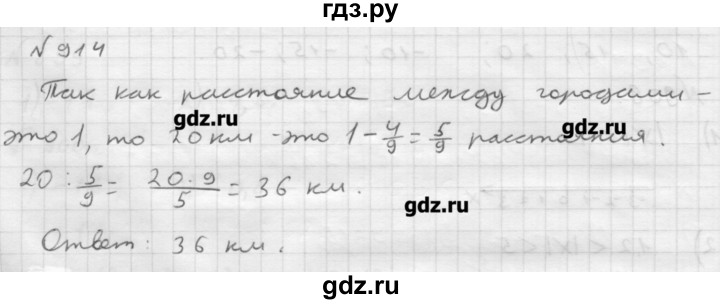 гдз.ру
№ 914
Так как расстояние между городами -
это 1, то 20 км - это 1 - 4/9 = 5/9 расстояния.
gdz.ru
gdz.ru
20 : 5/9 = 20 · 9/5 = 36 км.
gdz.ru
Ответ: 36 км.
gdz.ru